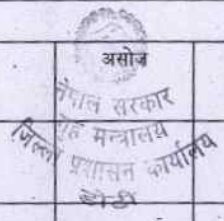 असोज
नेपाल सरकार
गृह मन्त्रालय
जिल्ला प्रशासन कार्यालय
डोटी